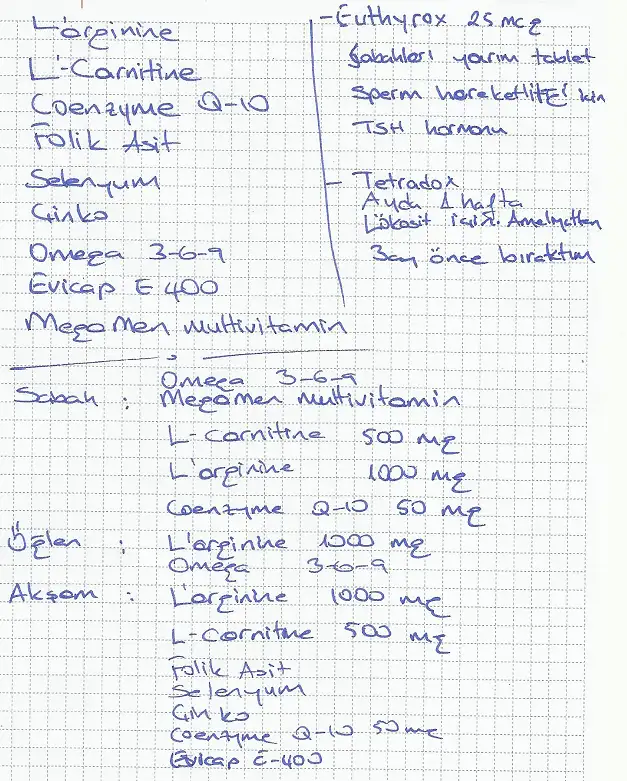 L'arginine
L'-Carnitine
Coenzyme Q-10
Folik Asit
Selenyum
Ginko
Omega 3-6-9
Evicap E 400
MegaMen multivitamin
- Euthyrox 25 mcg
Sabahları yarım tablet
Sperm hareketliği için
TSH hormonu
- Tetradox
Ayda 1 hafta
Lökosit için. Ameliyattan
3 ay önce bıraktım
Omega 3-6-9
Sabah : MegaMen multivitamin
L-Carnitine 500 mg
L'arginine 1000 mg
Coenzyme Q-10 50 mg
Öğlen : L'arginine 1000 mg
Omega 3-6-9
Akşam : L'arginine 1000 mg
L-Carnitine 500 mg
Folik Asit
Selenyum
Ginko
Coenzyme Q-10 50 mg
Evicap E-400